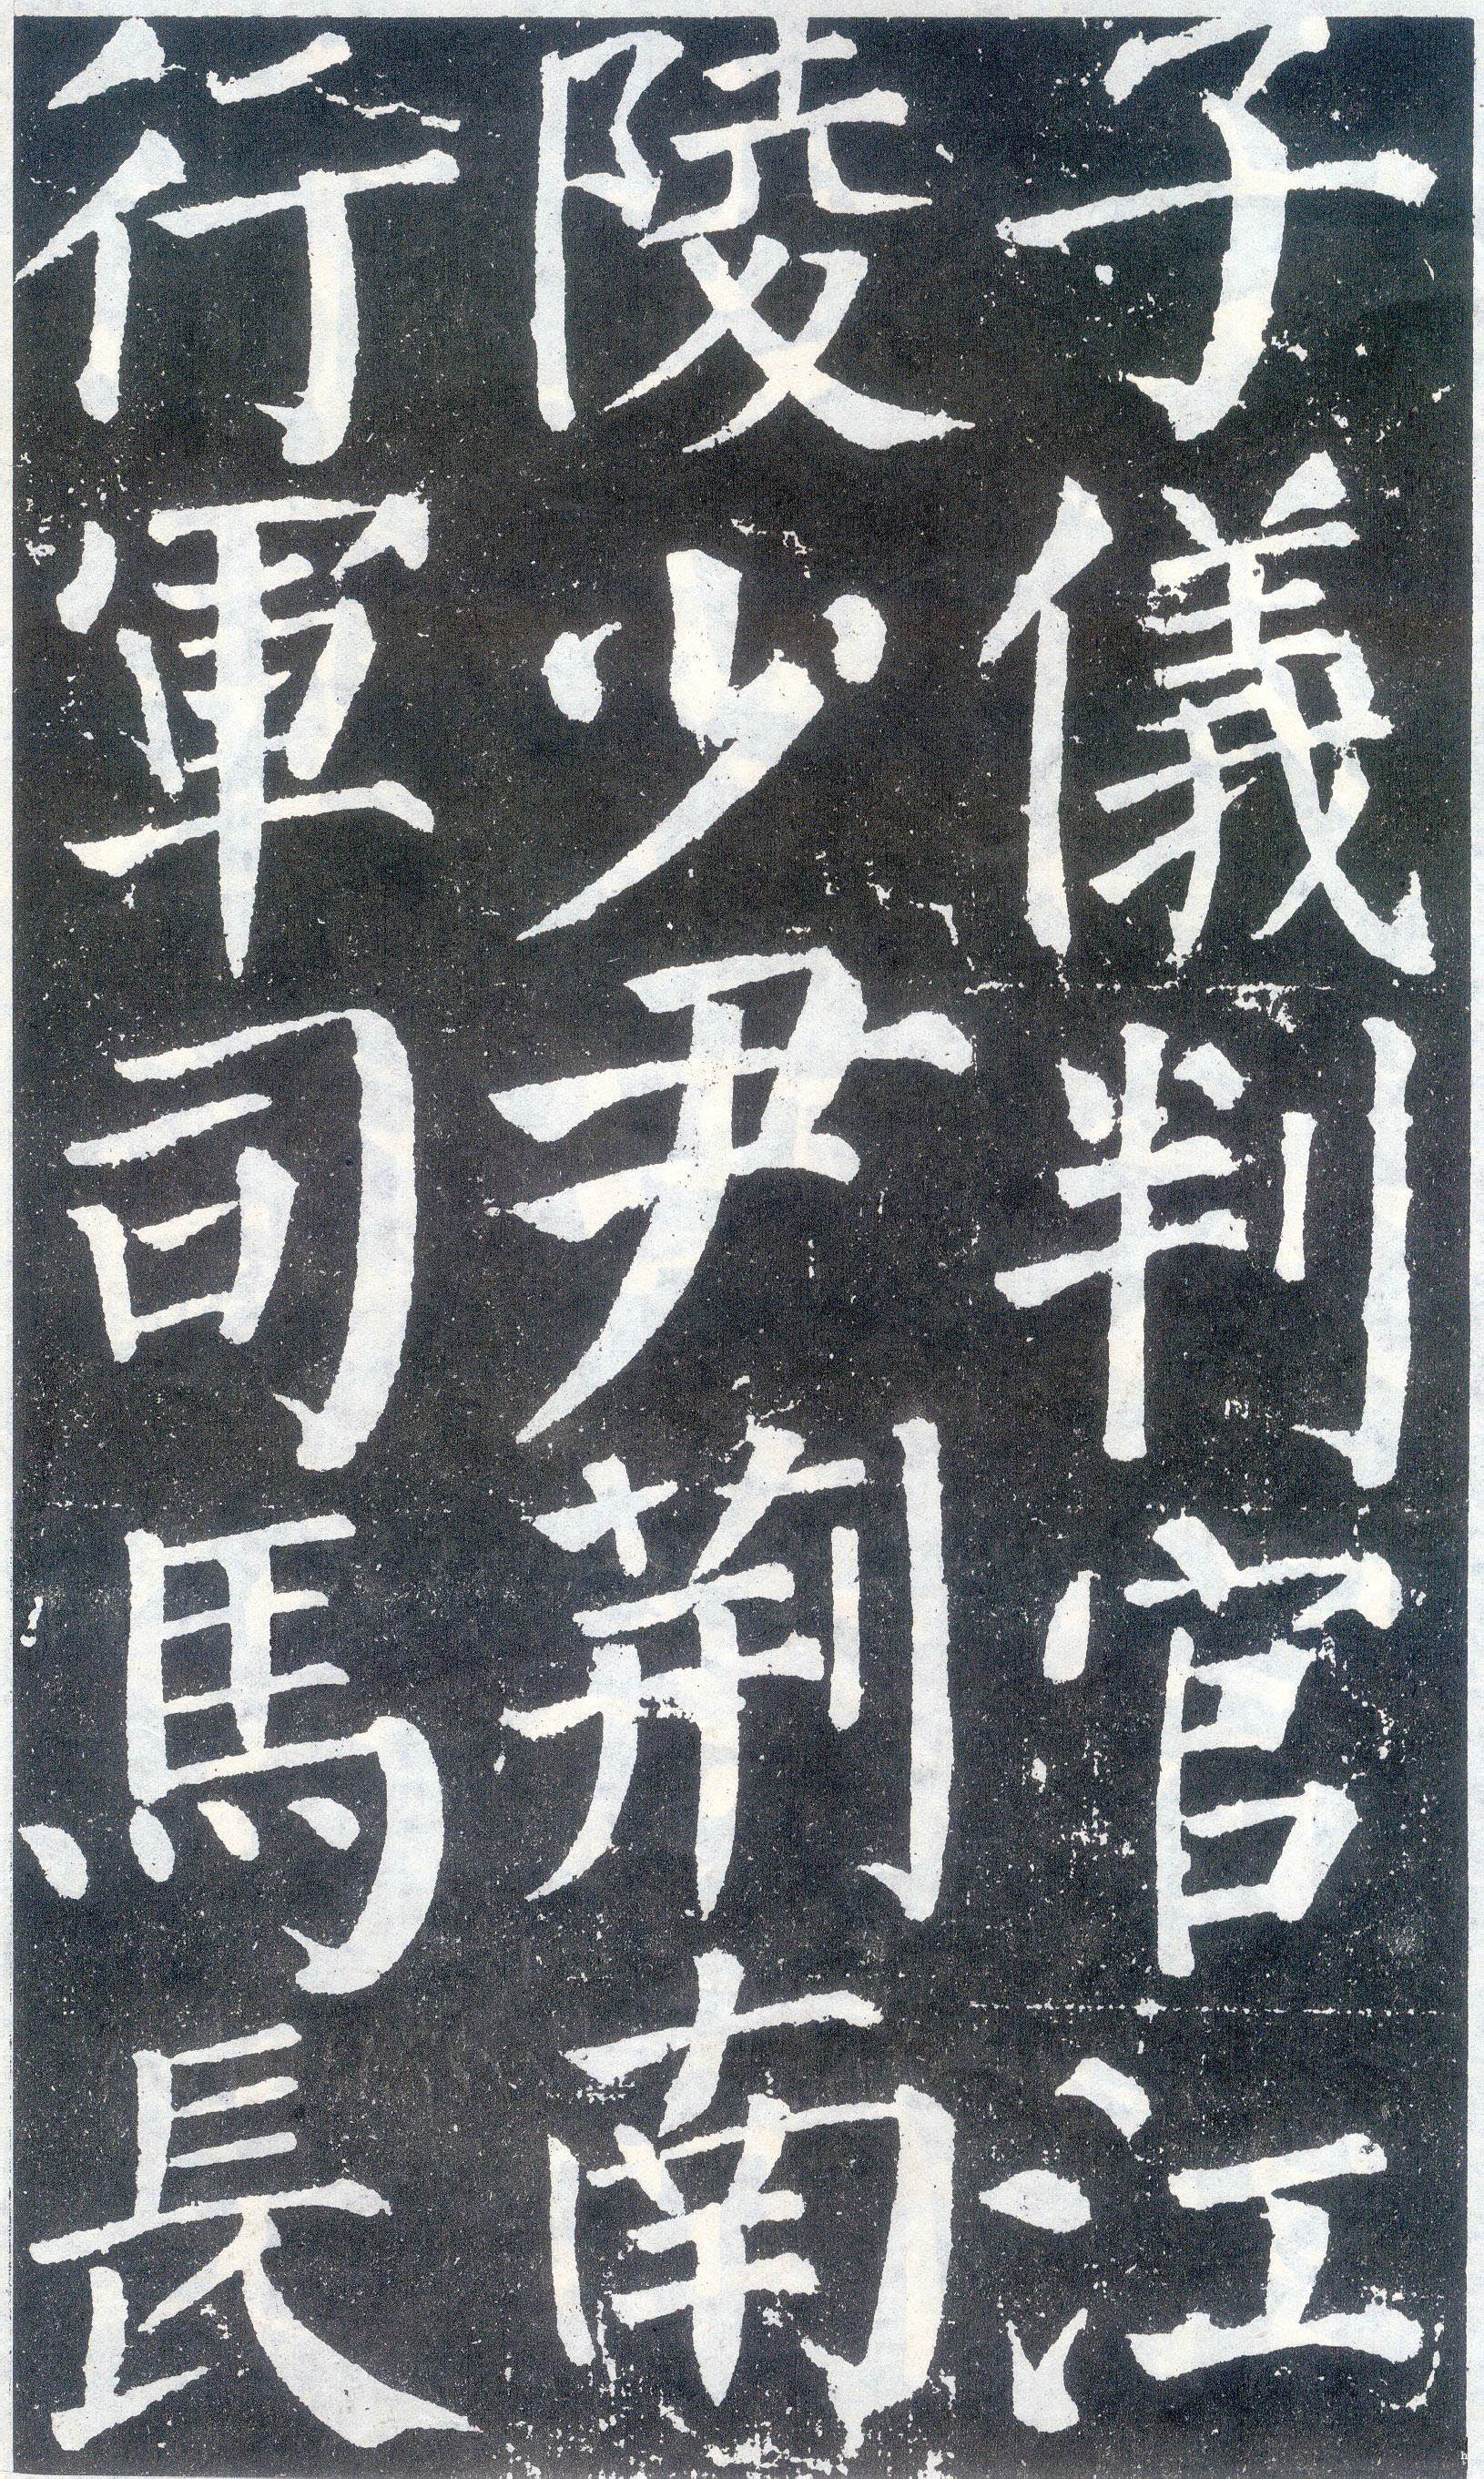 子儀判官江
陵少尹荊南
行軍司馬長